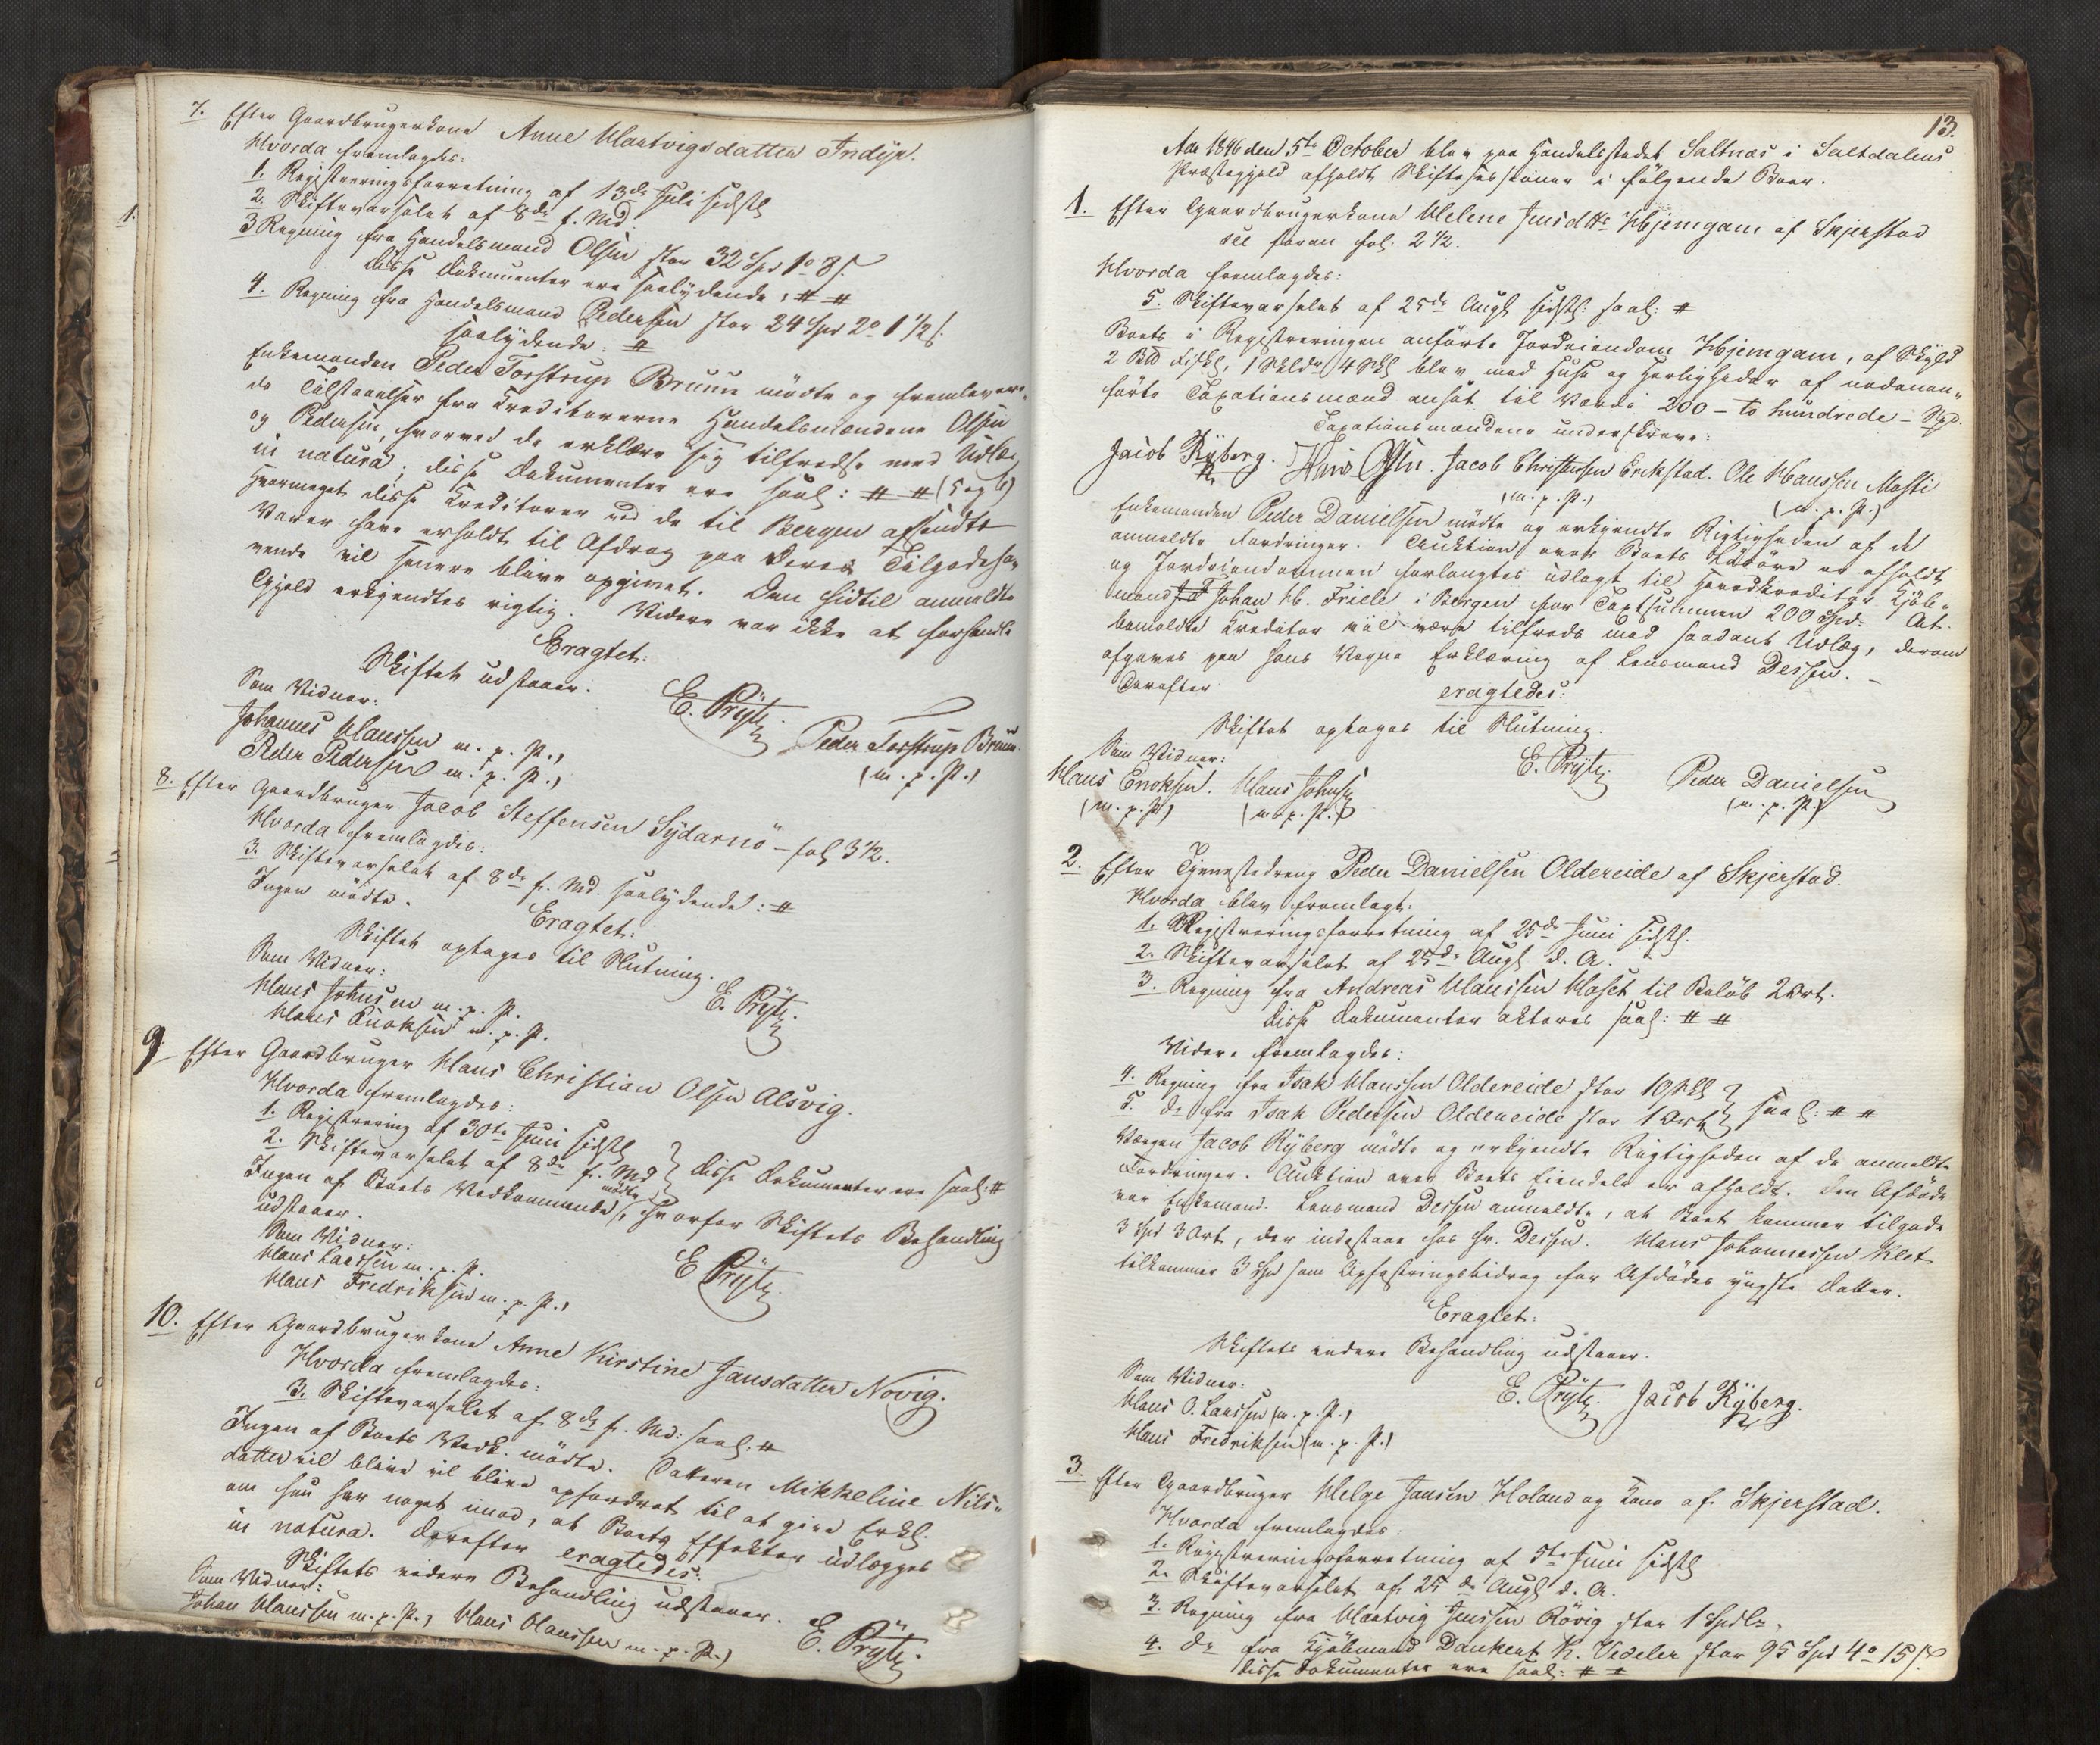 7. Efter Gaardbrugerkone Anne Hartvigsdatter Indyr.
Hvorda fremlagdes:
1. Registreringsforretning af 13de Juli sidstl
1.
2. Skiftevarselet af 8de f. Md.
3 Regning fra Handelsmand Olsen stor 32 Spd 1 o 8 s.
disse Dokumenter ere saalydende: # #
4. Regning fra Handelsmand Pedersen stor 24 Spd 2 o 1 1/2 s.
saalydende: #
Enkemanden Peder Torstrup Bruun mödte og fremlever-
de Tilstaaelser fra Kreditorerne Handelsmændene Olsen
og Pedersen, hvorved de erklære sig tilfredse med Udlæg
in natura; disse Dokumenter ere saal: # # (5 og 6)
Hvormeget disse Kreditorer ved de til Bergen afsendte
Varer have erholdt til Afdrag paa deres Tilgodeha-
vende vil senere blive opgivet. Den hidtil anmeldte
Gjeld erkjendtes rigtig. Videre var ikke at forhandle
Eragtet:
Skiftet udstaaer.
Som Vidner:
E. Prÿtz.
Johannes Hanssen m. p. P.,
Peder Torstrup Bruun.
Peder Pedersen m. p. P.,
(m. p. P.)
8. Efter Gaardbruger Jacob Steffensen Sÿdarnö - fol 3 1/2.
Hvorda fremlagdes:
3. Skiftevarselet af 8de f. Md. saalydende: #
Ingen mödte.
Eragtet:
Skiftet optages til Slutning.
Som Vidner:
Hans Johnsen m. p. P.
E. Prÿtz.
Hans Enoksen m. p. P.
9 Efter Gaardbruger Hans Christian Olsen Alsvig.
Hvorda fremlagdes:
1. Registrering af 30te Juni sidstl
2. Skiftevarselet af 8de f. Md } disse Dokumenter ere saal: #
Ingen af Boets Vedkommende mödte, hvorfor Skiftets Behandling
udstaaer.
Som Vidner:
Hans Larssen m. p. P.
E Prÿtz.
Hans Fredriksen m. p. P.,
10. Efter Gaardbrugerkone Anne Kirstine Jansdatter Novig.
Hvorda fremlagdes:
3. Skiftevarselet af 8de f. Md: saal: #
Ingen af Boets Vedk. mödte. Datteren Mikkeline Nils-
datter vil blive vil blive opfordret til at give Erkl.
om hun har noget imod, at Boets Effekter udlægges
in natura. Derefter eragtedes:
Skiftets videre Behandling udstaaer.
Som Vidner:
Johan Hanssen m. p. P., Hans Olaussen m. p. P.)
E. Prÿtz.
13.
Aar 1846 den 5te October blev paa Handelsstedet Saltnæs i Saltdalens
Præstegjeld afholdt Skiftesessioner i fölgende Boer.
1. Efter Gaardbrugerkone Helene Jensdttr Hjemgam af Skjerstad
see foran fol. 2 1/2.
Hvorda fremlagdes:
5. Skiftevarselet af 25de Augt sidstl: saal: #
Boets i Registreringen anförte Jordeiendom Hjemgam, af Skyld
2 Bd fiskl, 1 Skldr 4 Skl blev med Huse og Herligheder af nedenan-
förte Taxationsmænd ansat til Værdi 200 - to hundrede - Spd.
Taxationsmændene underskreve:
Jacob Rÿberg. Hans Olsen. Jacob Christensen Erikstad. Ole Hanssen Mosti
(m. p. P.) (m. p. P.)
Enkemanden Peder Danielsen mödte og erkjendte Rigtigheden af de
anmeldte Fordringer. Auktion over Boets Lösöre er afholdt
og Jordeiendommen forlangtes udlagt til Hovedkreditor Kjöb-
mand Johan H. Friele i Bergen for Taxtsummen 200 Spd. At
bemeldte Kreditor vil være tilfreds med saadant Udlæg, derom
afgaves paa hans Vegne Erklæring af Lensmand Dessen. -
Derefter
eragtedes:
Skiftet optages til Slutning.
Som Vidner:
Hans Enoksen. Hans Johnsen
E. Prÿtz.
Peder Danielsen
(m. p. P.) (m. p. P.)
(m. p. P.)
2. Efter Tjenestedreng Peder Danielsen Oldereide af Skjerstad.
Hvorda blev fremlagt:
1. Registreringsforretning af 25de Juni sidstl.
2. Skiftevarselet af 25de Augt d. A.
3. Regning fra Andreas Hanssen Hoset til Belöb 2 Ort.
disse Dokumenter akteres saal: # #
Videre fremlagdes:
4. Regning fra Isak Hanssen Oldereide stor 10 skl
5. do fra Isak Pedersen Oldereide stor 1 Ort } saal: # #
Værgen Jacob Rÿberg mödte og erkjendte Rigtigheden af de anmeldte
Fordringer. Auktion over Boets Eiendele er afholdt. Den Afdöde
var Enkemand. Lensmand Dessen anmeldte, at Boet kommer tilgode
3 Spd 3 Ort, der indestaae hos Hr. Dessen. Hans Johannessen Klet
tilkommer 3 Spd som Opfostringsbidrag for Afdödes yngste Datter.
Eragtet:
Skiftets videre Behandling udstaaer.
Som Vidner:
Hans O. Larssen (m. p. P.,
E. Prÿtz. Jacob Rÿberg.
Hans Fredriksen (m. p. P.)
3. Efter Gaardbruger Helge Jansen Holand og Kone af Skjerstad.
Hvorda fremlagdes:
1. Registreringsforretning af 5te Juni sidstl
2. Skiftevarselet af 25de Augt d. A.
3. Regning fra Hartvig Jenssen Rövig stor 1 Spdlr,
4. do fra Kjöbmand Dankert K. Vedeler stor 95 Spd 4 o 15 s.
disse Dokumenter ere saal: # #